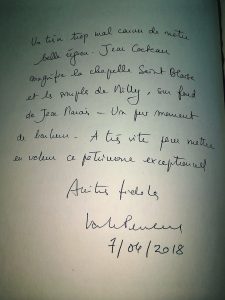 Un trésor trop mal connu de notre
belle région. Jean Cocteau
magnifie la chapelle Saint Blaise
et les simples de Milly, sur fond
de Jean Marais - Un pur moment
de bonheur. A très vite pour mettre
en valeur ce patrimoine exceptionnel
Amitiés fidèles
7/04/2018